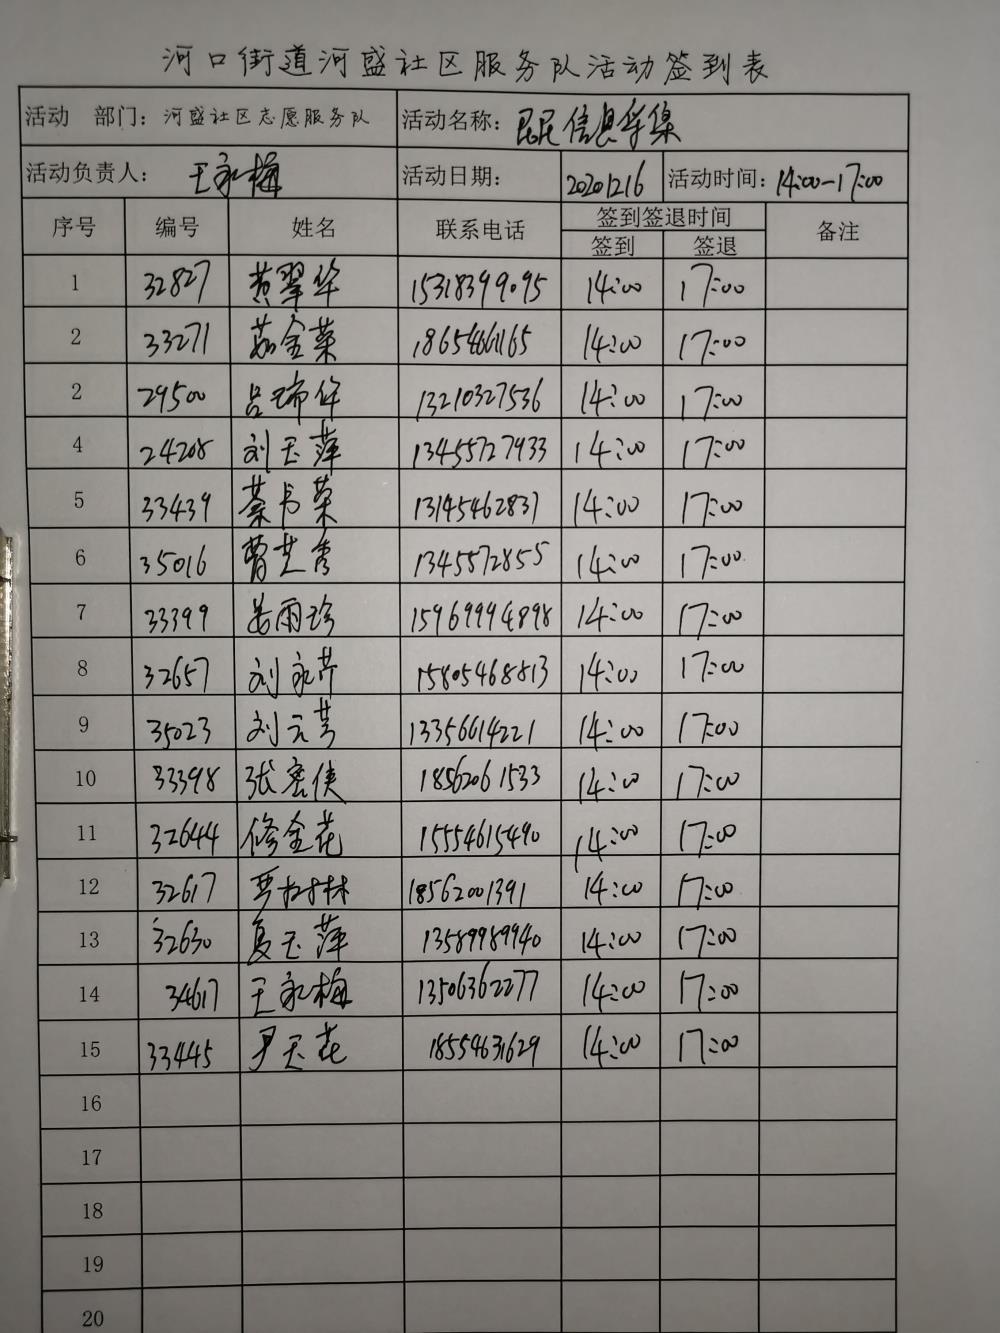 河口街道河盛社区服务队活动签到表
活动 部门：河盛社区志愿服务队 活动名称：居民信息采集
活动负责人： 王永梅 活动日期： 20201216 活动时间：14:00-17:00
序号 编号 姓名 联系电话 签到签退时间 备注
签到 签退
1 32827 黄翠华 15318399095 14:00 17:00
2 33271 茹金荣 18654661165 14:00 17:00
2 29500 吕瑞华 13210327536 14:00 17:00
4 24208 刘玉萍 13455727933 14:00 17:00
5 33439 綦书荣 13145462837 14:00 17:00
6 35016 曹芝秀 1345572855 14:00 17:00
7 33399 姜雨珍 15969994898 14:00 17:00
8 32657 刘永芹 15805468813 14:00 17:00
9 35023 刘云芳 13356614221 14:00 17:00
10 33398 张密侠 18562061533 14:00 17:00
11 32644 修金花 15554615490 14:00 17:00
12 32617 贾树林 18562001391 14:00 17:00
13 32630 夏玉萍 13589989940 14:00 17:00
14 34617 王永梅 13506362277 14:00 17:00
15 33445 尹玉花 18554631629 14:00 17:00
16
17
18
19
20